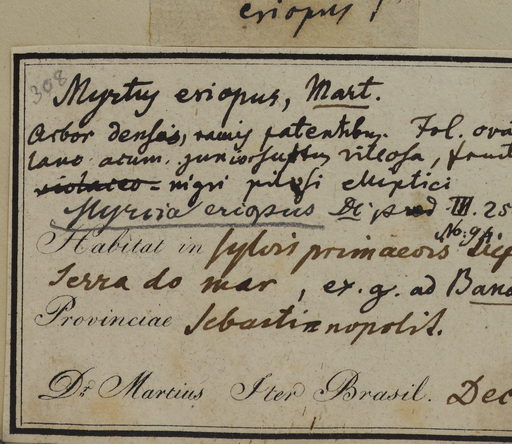 eriopus
308
Myrtus eriopus, Mart.
Arbor densa, ramis patentibus. Fol. ova
lanc. acum. junior subtus villosa, fruct
violaceo nigri pilosi elliptici
Myrcia eriopus DC prod III. 25
No: 94.
Habitat in sylvis primaevis
Serra do mar, ex. g. ad Bana
Provinciae Sebastianopolit.
Dr. Martius Iter Brasil. Dec